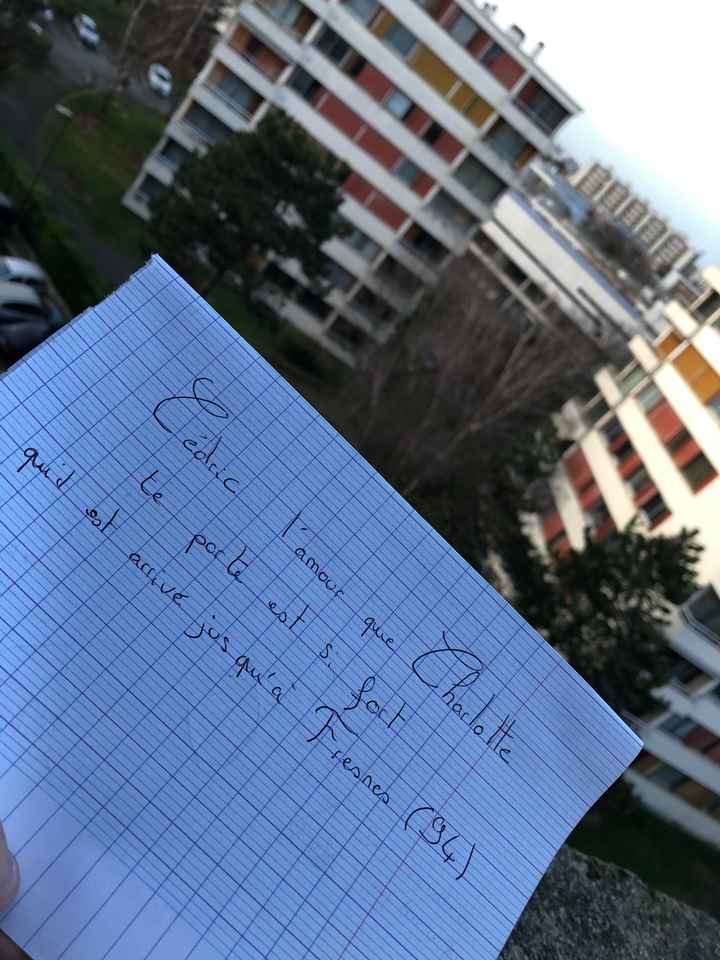 Cédric l'amour que Charlotte
te porte est si fort
qu'il est arrivé jusqu'à Fresnes (94)